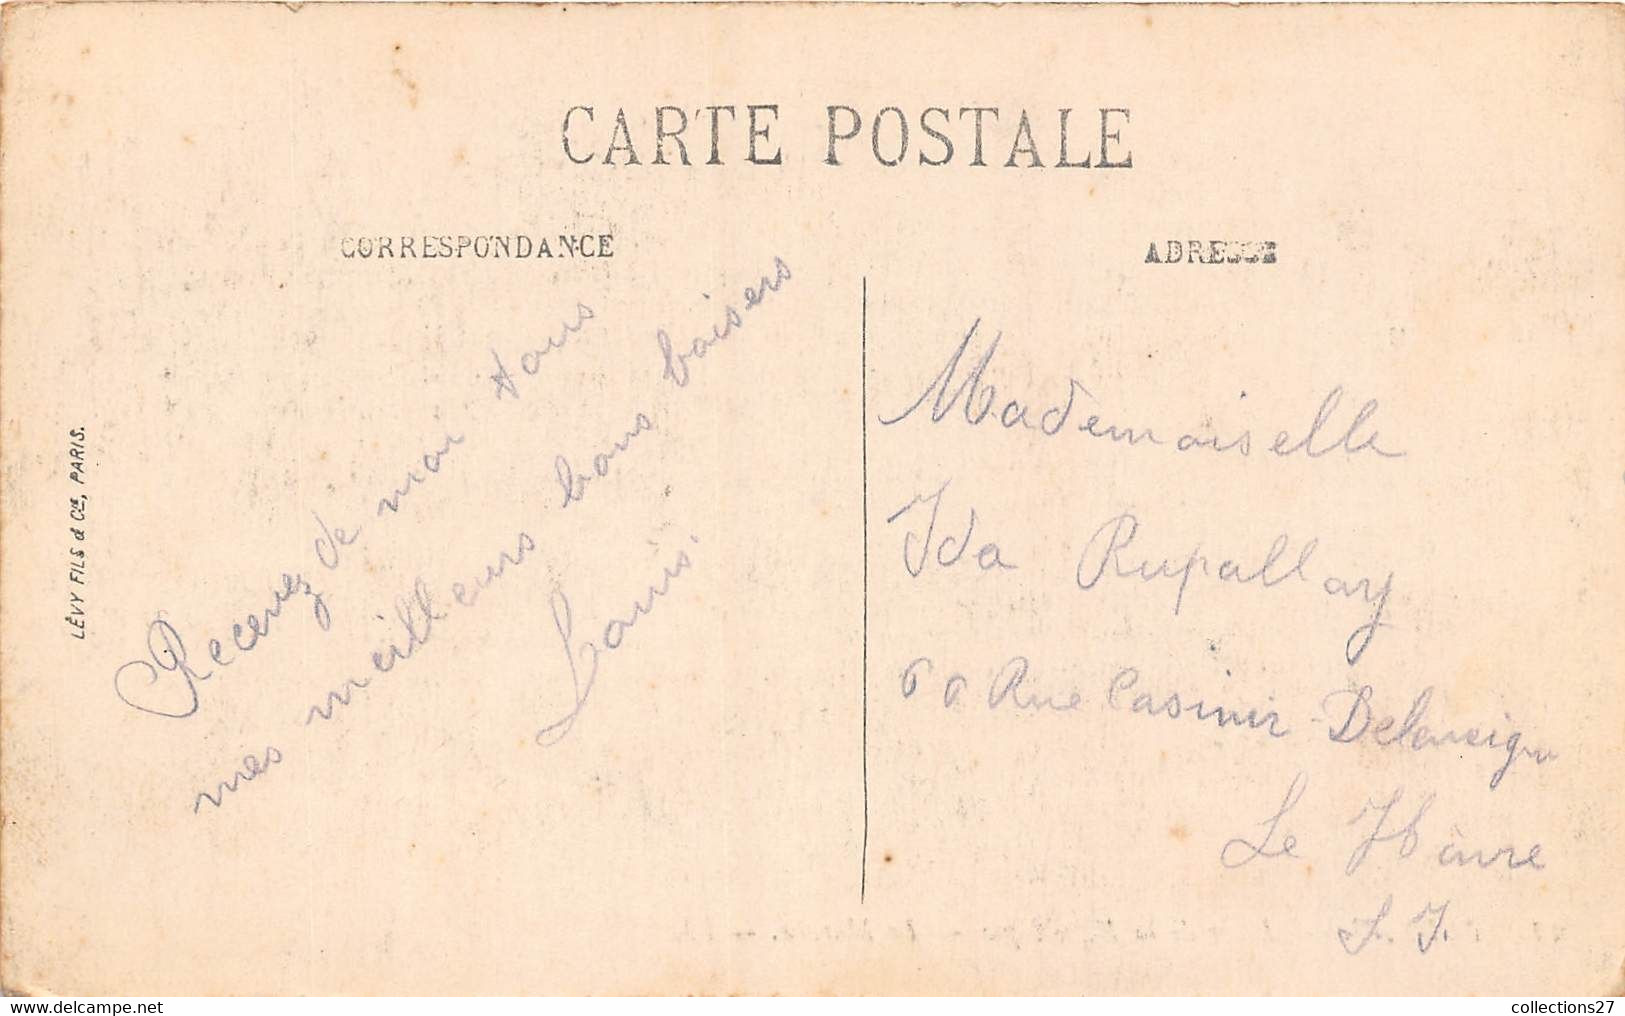 CARTE POSTALE
CORRESPONDANCE
ADRESSE
LÉVY FILS & Cie, PARIS.
Recevez de moi tous
mes meilleurs bons baisers
Louis.
Mademoiselle
Ida Rupallay
60 Rue Casimir Delavigne
Le Hâvre
S. I.
collections27